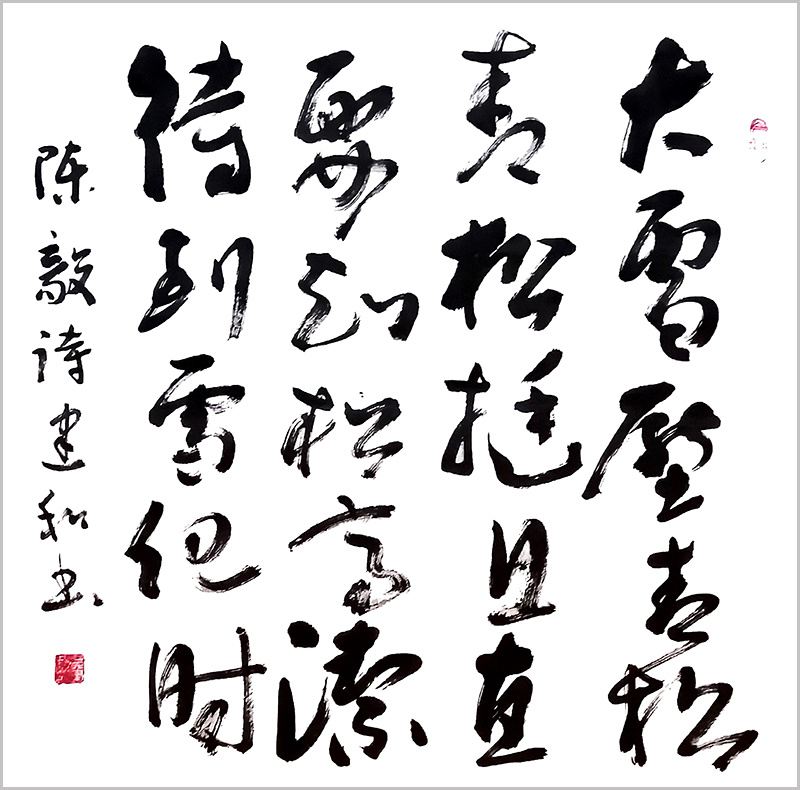 大雪壓青松
青松挺且直
要知松高潔
待到雪化时
陈毅诗建和书